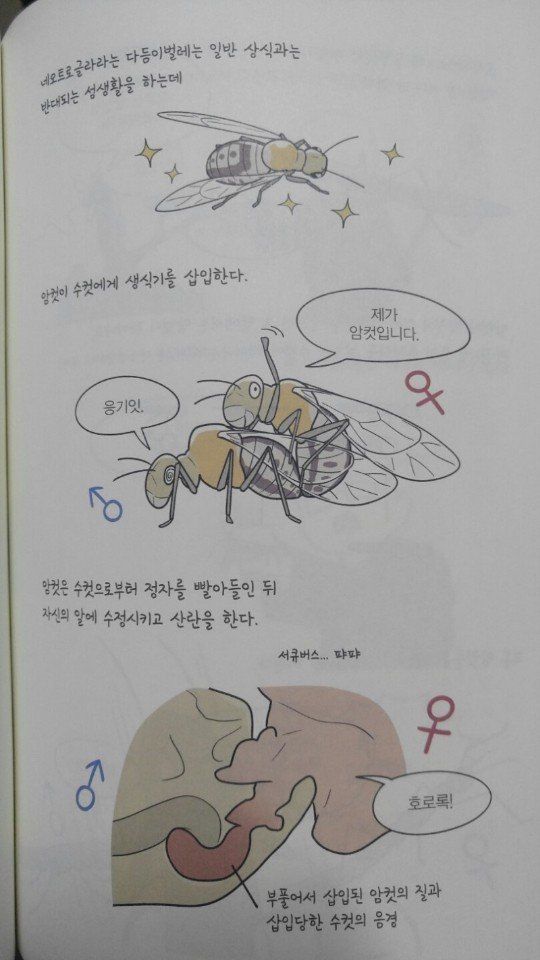 네오트로글라라는 다듬이벌레는 일반 상식과는
반대되는 성생활을 하는데
암컷이 수컷에게 생식기를 삽입한다.
제가
암컷입니다.
응기잇.
암컷은 수컷으로부터 정자를 빨아들인 뒤
자신의 알에 수정시키고 산란을 한다.
서큐버스... 퍄퍄
호로록!
부풀어서 삽입된 암컷의 질과
삽입당한 수컷의 응경